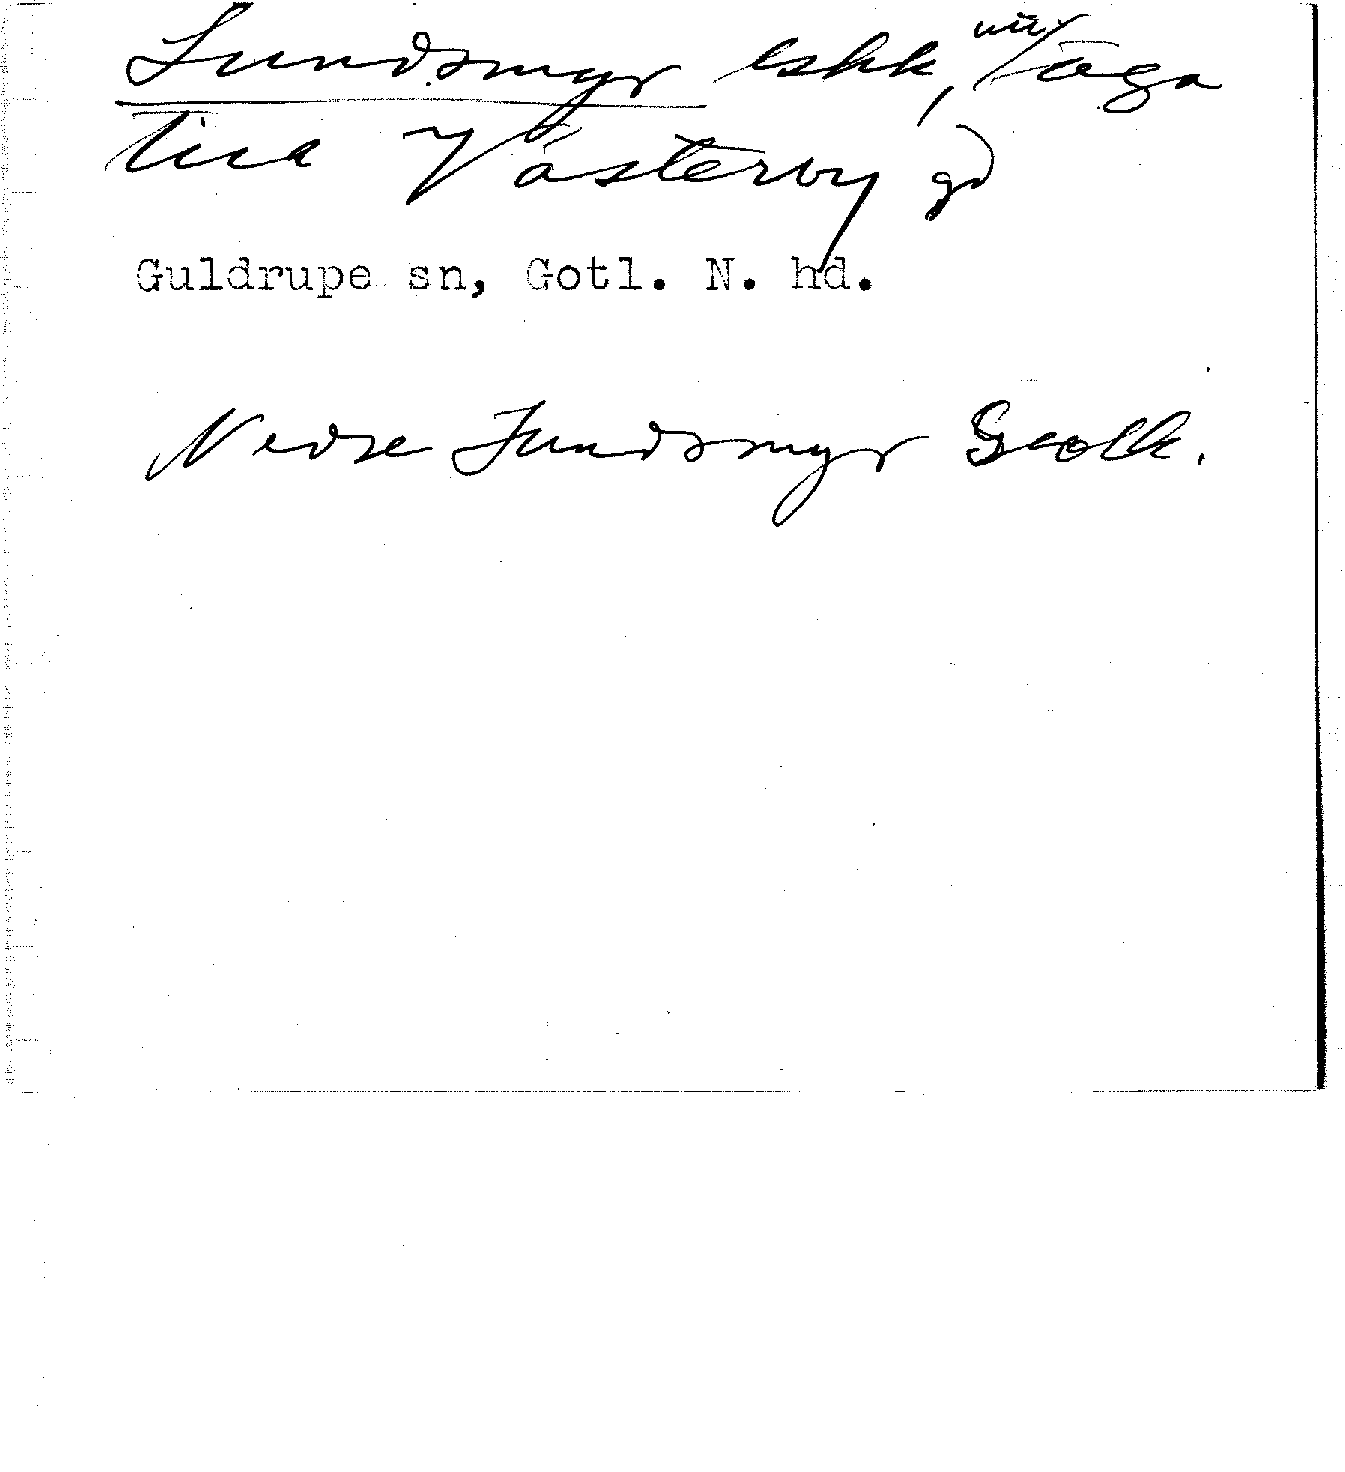 Lundsmyr eskk, nu/ äga
till Västerby gd
Guldrupe sn, Gotl. N. hd.
Nedre Lundsmyr Geolk.